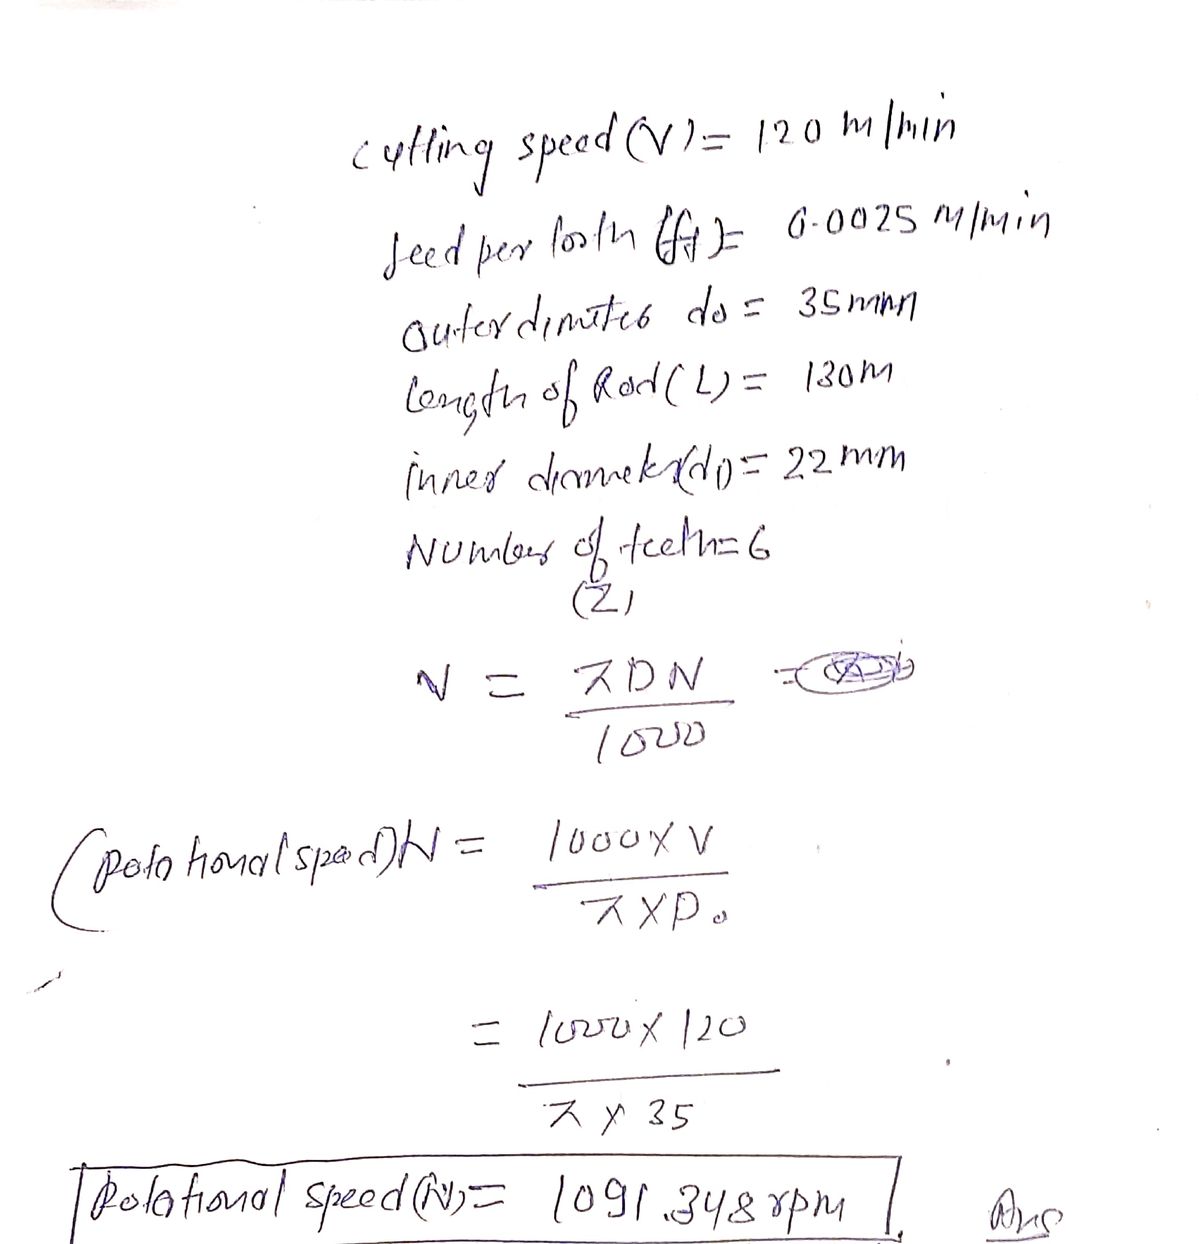 cutting speed (V) = 120 m/min
feed per tooth (ft) = 0.0025 m/min
outer dimites do = 35 mm
Length of Rod (L) = 130m
inner diameter (di) = 22 mm
Number of teeth = 6
(Z)
V = πDN / 1000 =
(Rotational speed) N = 1000 x V / π x Do
= 1000 x 120 / π x 35
Rotational speed (N) = 1091.348 rpm Ans